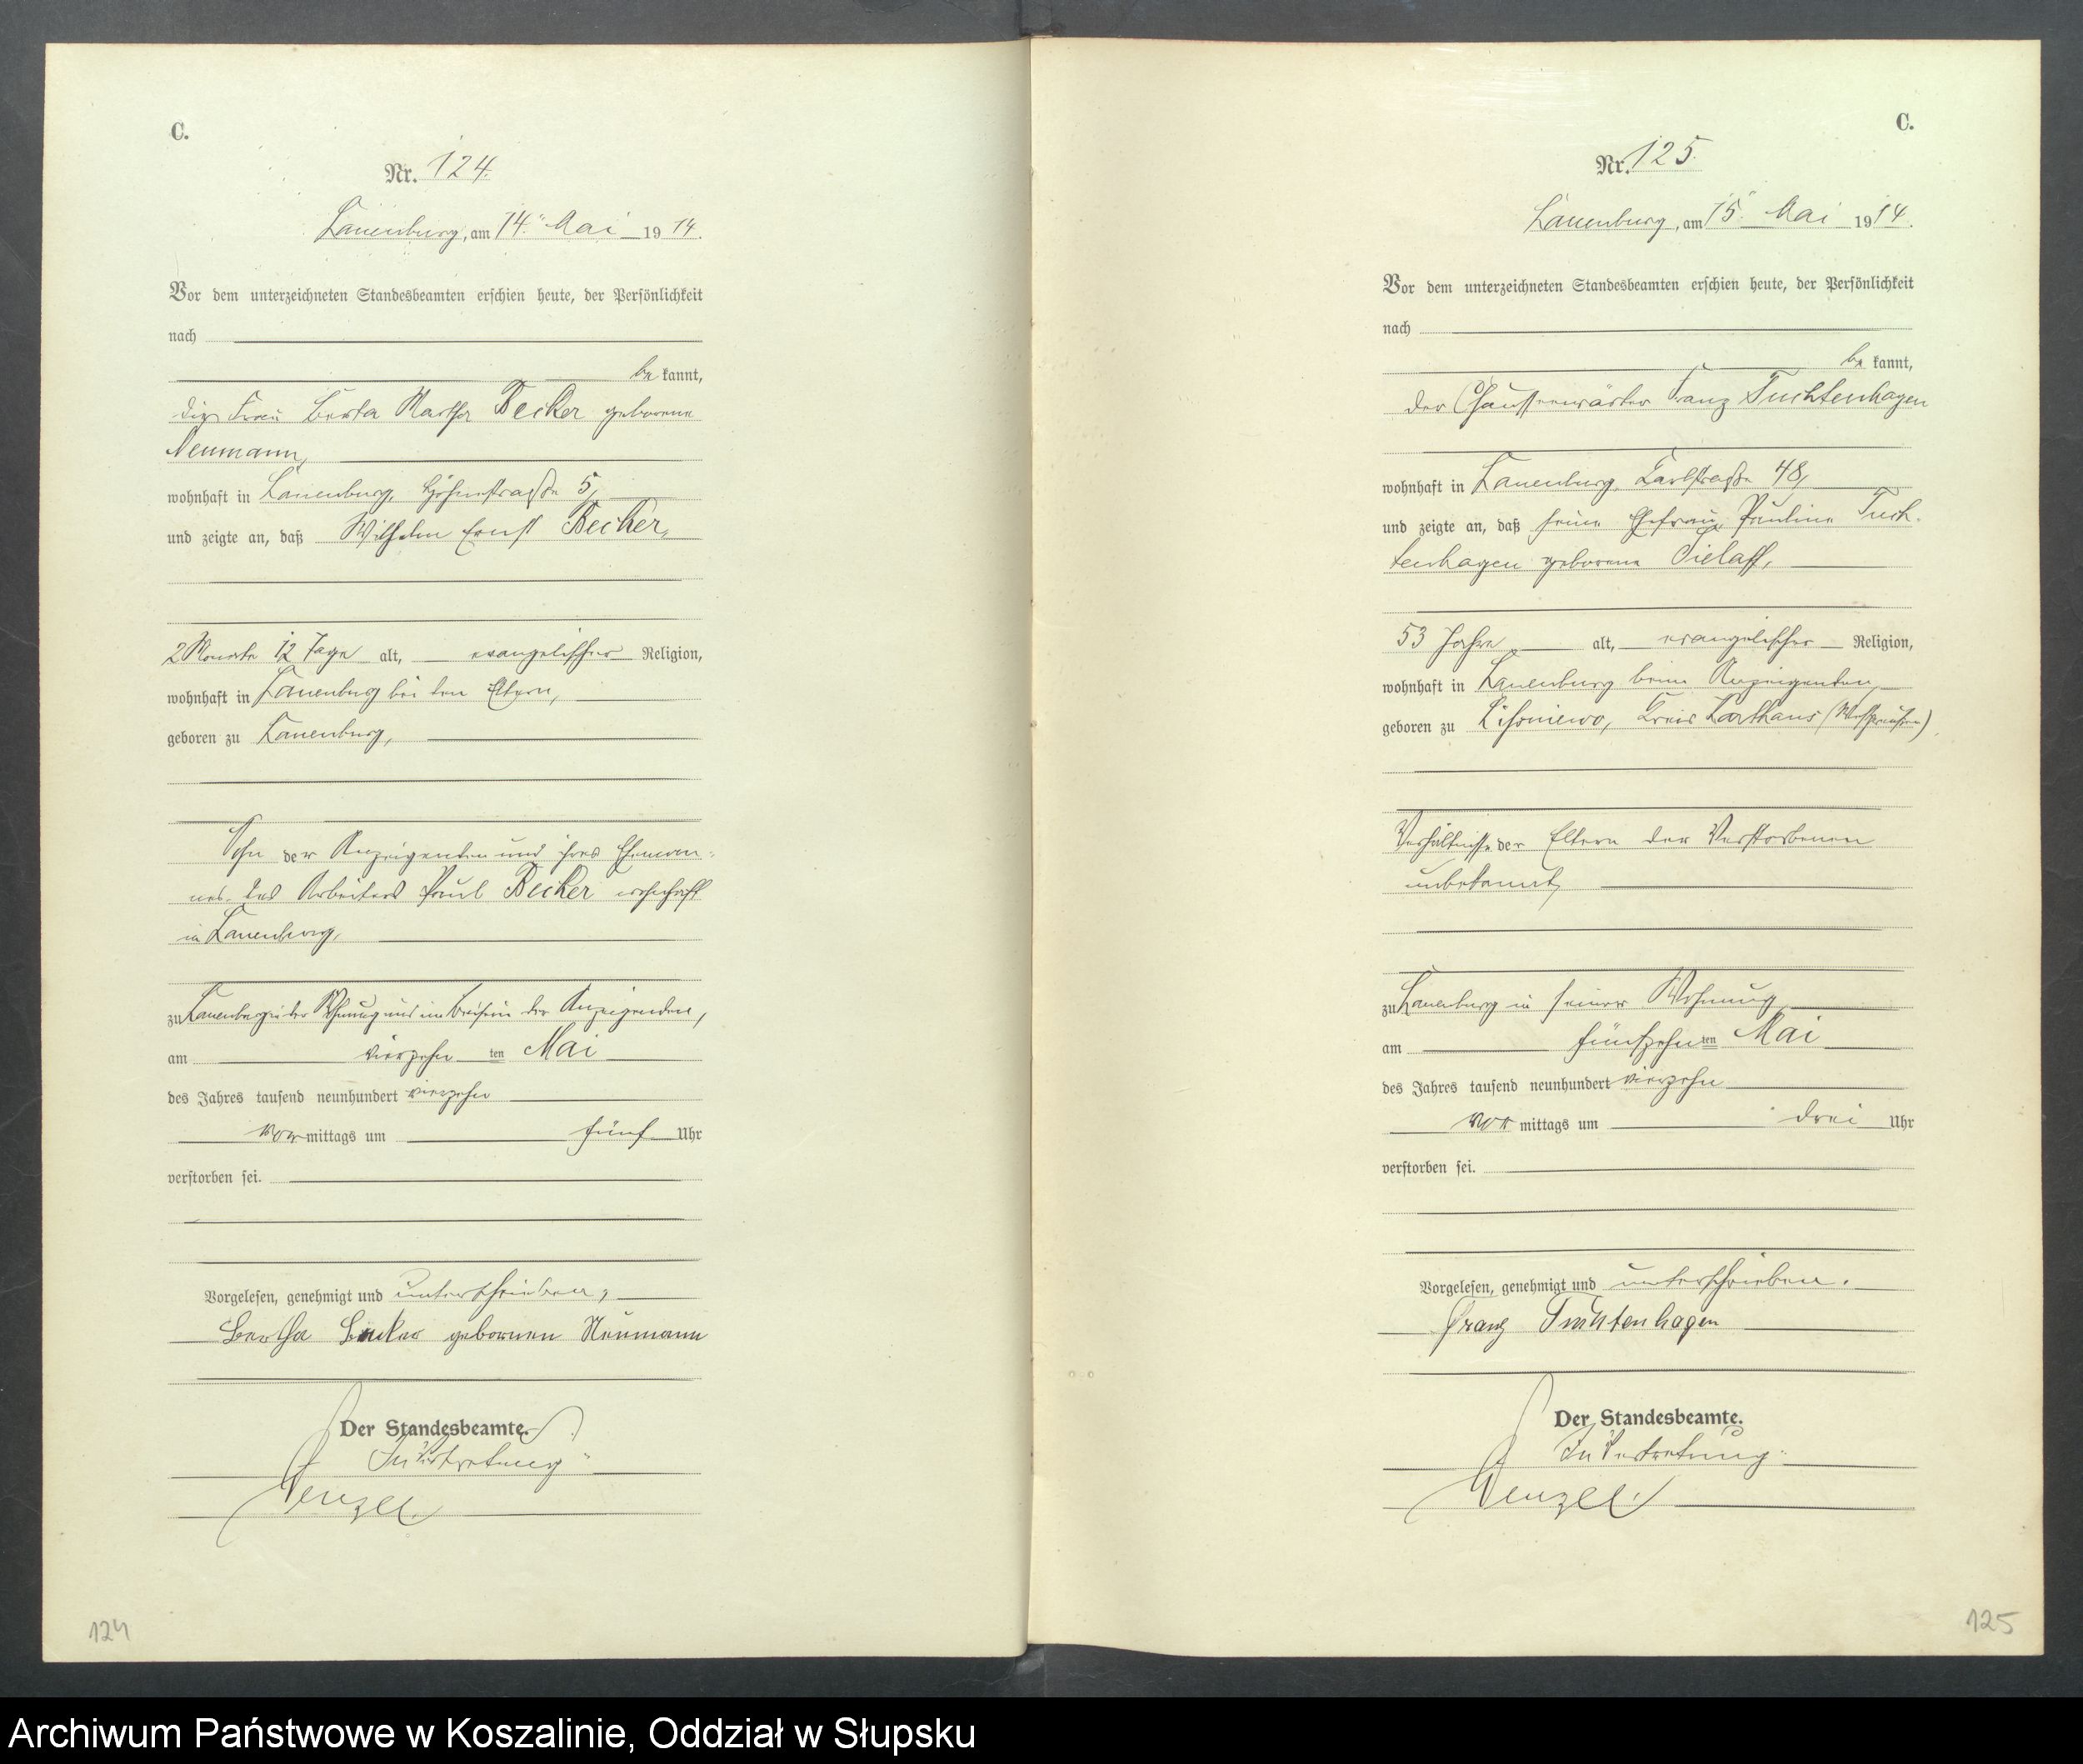 C.
Nr. 124.
Lauenburg, am 14. Mai 1914.
Vor dem unterzeichneten Standesbeamten erschien heute, der Persönlichkeit
nach
be kannt,
die Frau Berta Martha Becker geborene
Neumann,
wohnhaft in Lauenburg, Höhenstraße 5,
und zeigte an, daß Wilhelm Ernst Becker,
2 Monate 12 Tage alt, evangelischer Religion,
wohnhaft in Lauenburg bei den Eltern,
geboren zu Lauenburg,
Sohn der Anzeigenden und ihres Eheman-
nes des Arbeiters Paul Becker wohnhaft
in Lauenburg,
zu Lauenburg in der Wohnung und im Beisein der Anzeigenden,
am vierzehn ten Mai
des Jahres tausend neunhundert vierzehn
vor mittags um fünf Uhr
verstorben sei.
Vorgelesen, genehmigt und unterschrieben,
Bertha Becker gebornen Neumann
Der Standesbeamte.
In Vertretung
Wenzel.
124
C.
Nr. 125.
Lauenburg, am 15. Mai 1914.
Vor dem unterzeichneten Standesbeamten erschien heute, der Persönlichkeit
nach
be kannt,
der Chausseewärter Franz Tuchtenhagen
wohnhaft in Lauenburg, Karlstraße 48,
und zeigte an, daß seine Ehefrau Pauline Tuch-
tenhagen geborene Sielaff,
53 Jahre alt, evangelischer Religion,
wohnhaft in Lauenburg beim Anzeigenden
geboren zu Lissniewo, Kreis Karthaus (Westpreußen),
Verhältnisse der Eltern der Verstorbenen
unbekannt,
zu Lauenburg in seiner Wohnung
am fünfzehn ten Mai
des Jahres tausend neunhundert vierzehn
vor mittags um drei Uhr
verstorben sei.
Vorgelesen, genehmigt und unterschrieben.
Franz Tuchtenhagen
Der Standesbeamte.
In Vertretung:
Wenzel.
125
Archiwum Państwowe w Koszalinie, Oddział w Słupsku